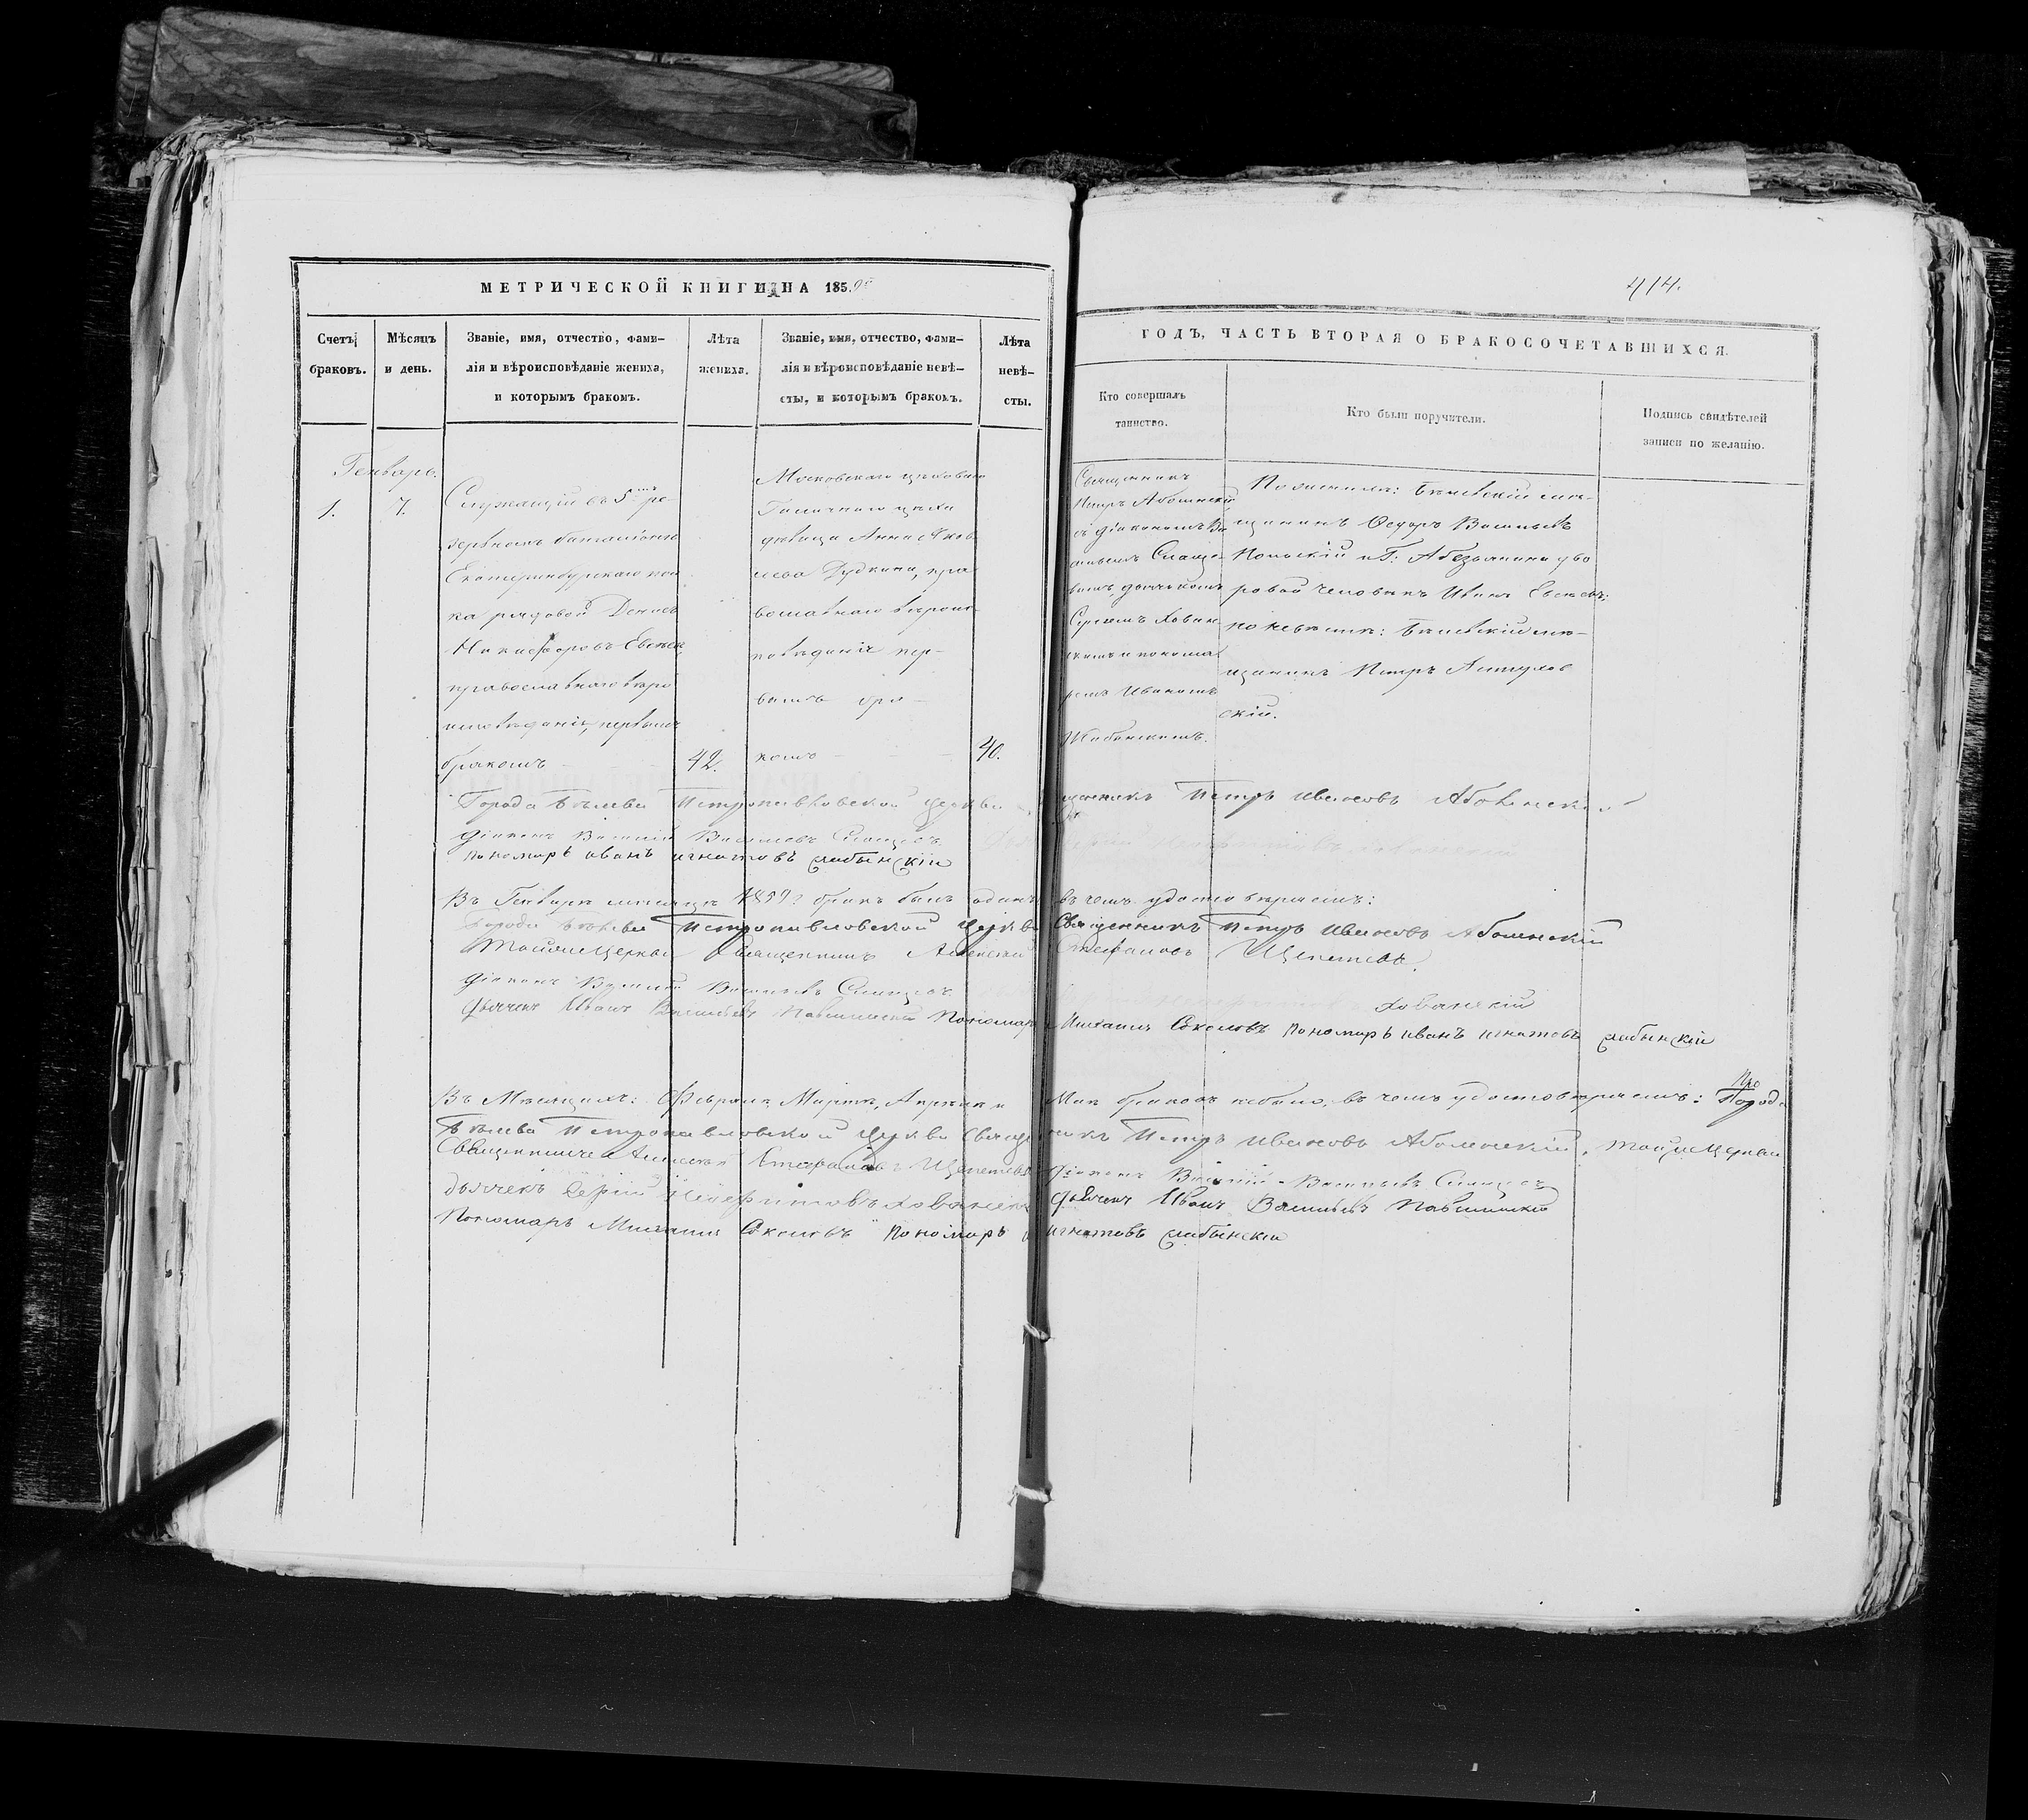 МЕТРИЧЕСКОЙ КНИГИ НА 1859
414.
ГОДЪ, ЧАСТЬ ВТОРАЯ О БРАКОСОЧЕТАВШИХСЯ.
Счетъ браковъ.
Мѣсяцъ и день.
Званіе, имя, отчество, фами-
лія и вѣроисповѣданіе жениха,
и которымъ бракомъ.
Лѣта
жениха.
Званіе, имя, отчество, фами-
лія и вѣроисповѣданіе невѣ-
сты, и которымъ бракомъ.
Лѣта
невѣ-
сты.
Кто совершалъ
таинство.
Кто были поручители.
Подпись свидѣтелей
записи по желанію.
Генварь.
1.
7.
Служащій въ 5 ре-
зервномъ баталіонѣ
Екатеринбургскаго пол
ка рядовой Денисъ
Никифоровъ Евсѣев
православнаго вѣро
исповѣданія, первымъ
бракомъ
42.
Московскаго цеховаго
цеха
дѣвица Анна Яков
лева Дудкина, пра
вославнаго вѣроис
повѣданія пер-
вымъ бра-
комъ
40.
Священникъ
Петръ
съ діакономъ Ва
сильемъ
дьячкомъ
Сергіемъ Хован
скимъ и понома
ремъ Иваномъ
По женихѣ: Бѣлевскій мѣ-
щанинъ Ѳедоръ Васильевъ
и Г: дво
ровой человѣкъ Иванъ
по невѣстѣ: Бѣлевскій мѣ-
щанинъ Петръ
скій.
Города Бѣлева Петропавловской Церкви Петръ Ивановъ
Діаконъ Василій Васильевъ
Пономарь иванъ игнатовъ
Въ Генварѣ мѣсяцѣ 1859 бракъ былъ одинъ въ чемъ удостовѣряемъ:
Города Бѣлева Петропавловской Церкви Священникъ Петръ Ивановъ
Тойже Церкви Священникъ Алексѣй Стефановъ Щепетевъ.
Діаконъ Василій Васильевъ
Хованскій
Дьячекъ Иванъ Васильевъ Павшинскій Пономарь Михаилъ Соколовъ Пономарь иванъ игнатовъ
Въ Мѣсяцахъ: Февралѣ, Мартѣ, Апрѣлѣ и Маѣ браковъ небыло, въ чемъ удостовѣряемъ: Города
Бѣлева Петропавловской Церкви Священникъ Петръ Ивановъ Тойже Церкви
Священникъ Алексѣй Стефановъ Щепетевъ Діаконъ Василій Васильевъ
дьячекъ Сергій Хованскій Дьячекъ Иванъ Васильевъ Павшинскій
Пономарь Михаилъ Соколовъ Пономарь игнатовъ